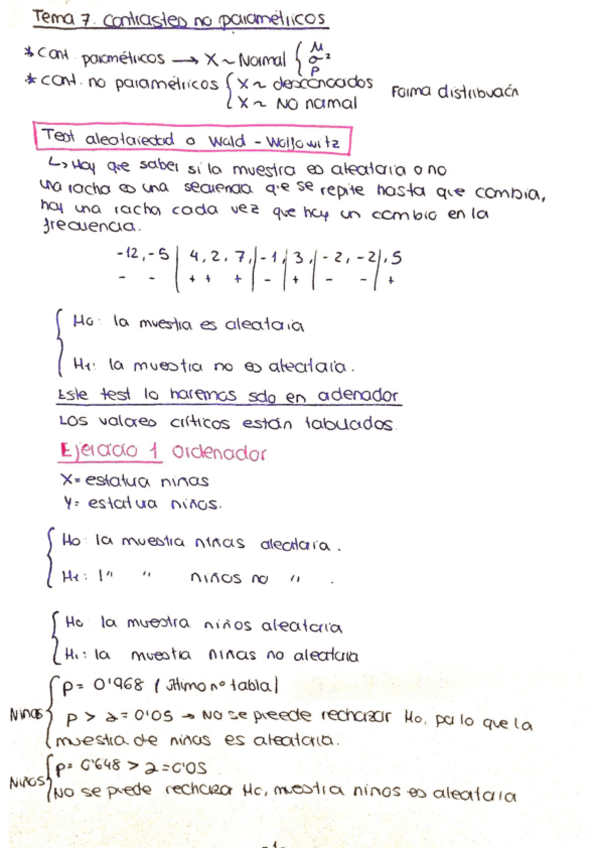 Tema 7. Contrastes no paramétricos
* cont. paramétricos → X ~ Normal { μ σ² p
* cont. no paramétricos { X ~ desconocidos
X ~ No normal
Forma distribución
Test aleatoriedad o Wald - Wolfowitz
↳ Hay que saber si la muestra es aleatoria o no
una racha es una secuencia que se repite hasta que cambia,
hay una racha cada vez que hay un cambio en la
frecuencia.
-12, -5 | 4, 2, 7, | -1, | 3, | -2, -2 |, 5
- - | + + + | - | + | - - | +
H0: la muestra es aleatoria
H1: la muestra no es aleatoria.
Este test lo haremos solo en ordenador
Los valores críticos están tabulados.
Ejercicio 1 Ordenador
X= estatua niñas
Y= estatua niños.
H0: la muestra niñas aleatoria.
H1: 1" " niños no " .
H0 la muestra niños aleatoria
H1: la muestra niñas no aleatoria
Niñas { p = 0'968 (último nº tabla)
p > α = 0'05 → No se puede rechazar H0, por lo que la
muestra de niñas es aleatoria.
Niños { p = 0'648 > α = 0'05
No se puede rechazar H0, muestra niños es aleatoria
- 1 -